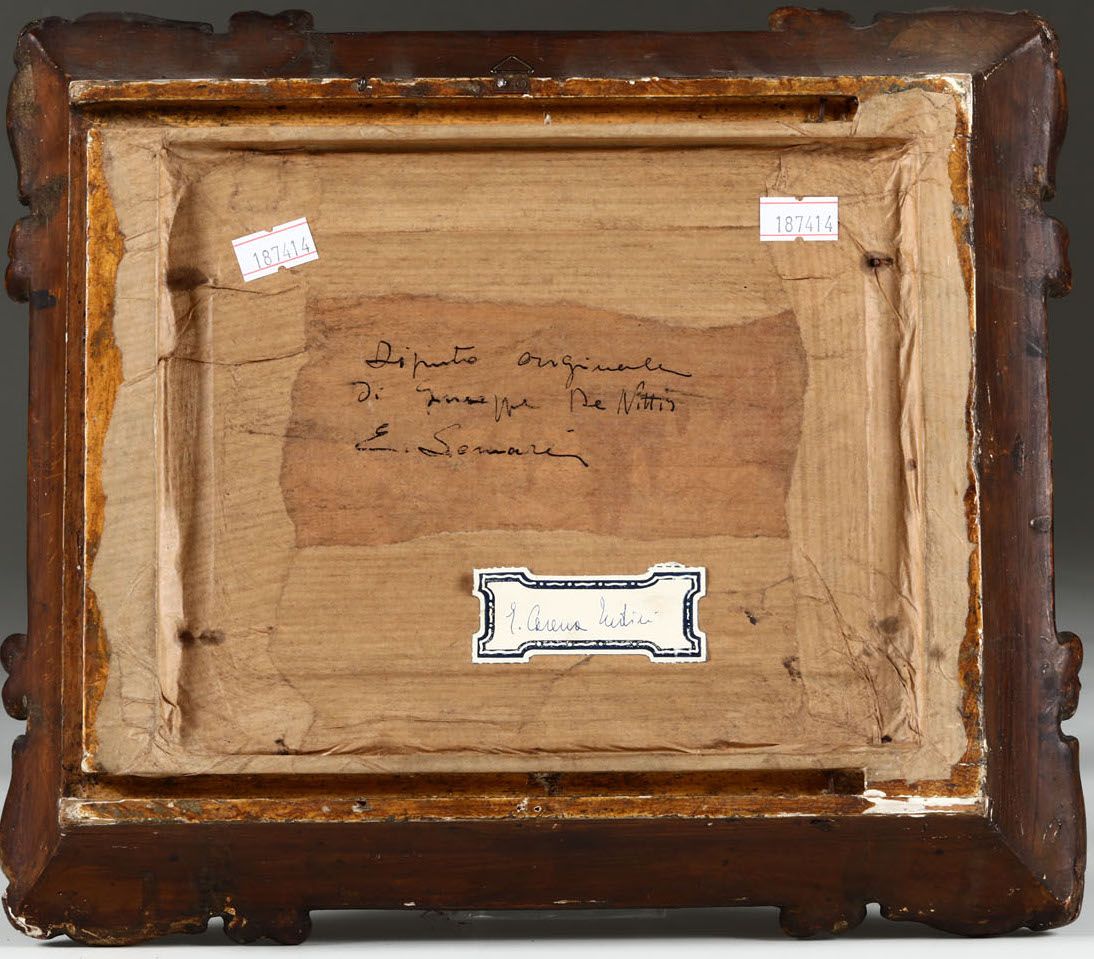 187414
187414
Dipinto originale
di Giuseppe De Nittis
E. Somaré